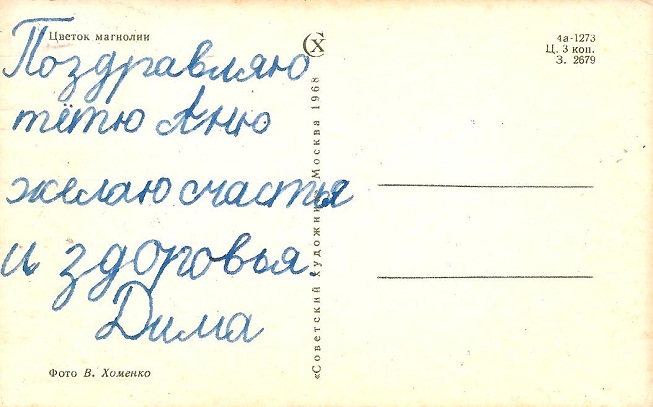 Цветок магнолии
4а-1273
Ц. 3 коп.
З. 2679
Поздравляю
тётю Аню
желаю счастья
и здоровья.
Дима
Фото В. Хоменко
«Советский Художник» Москва 1968
СХ